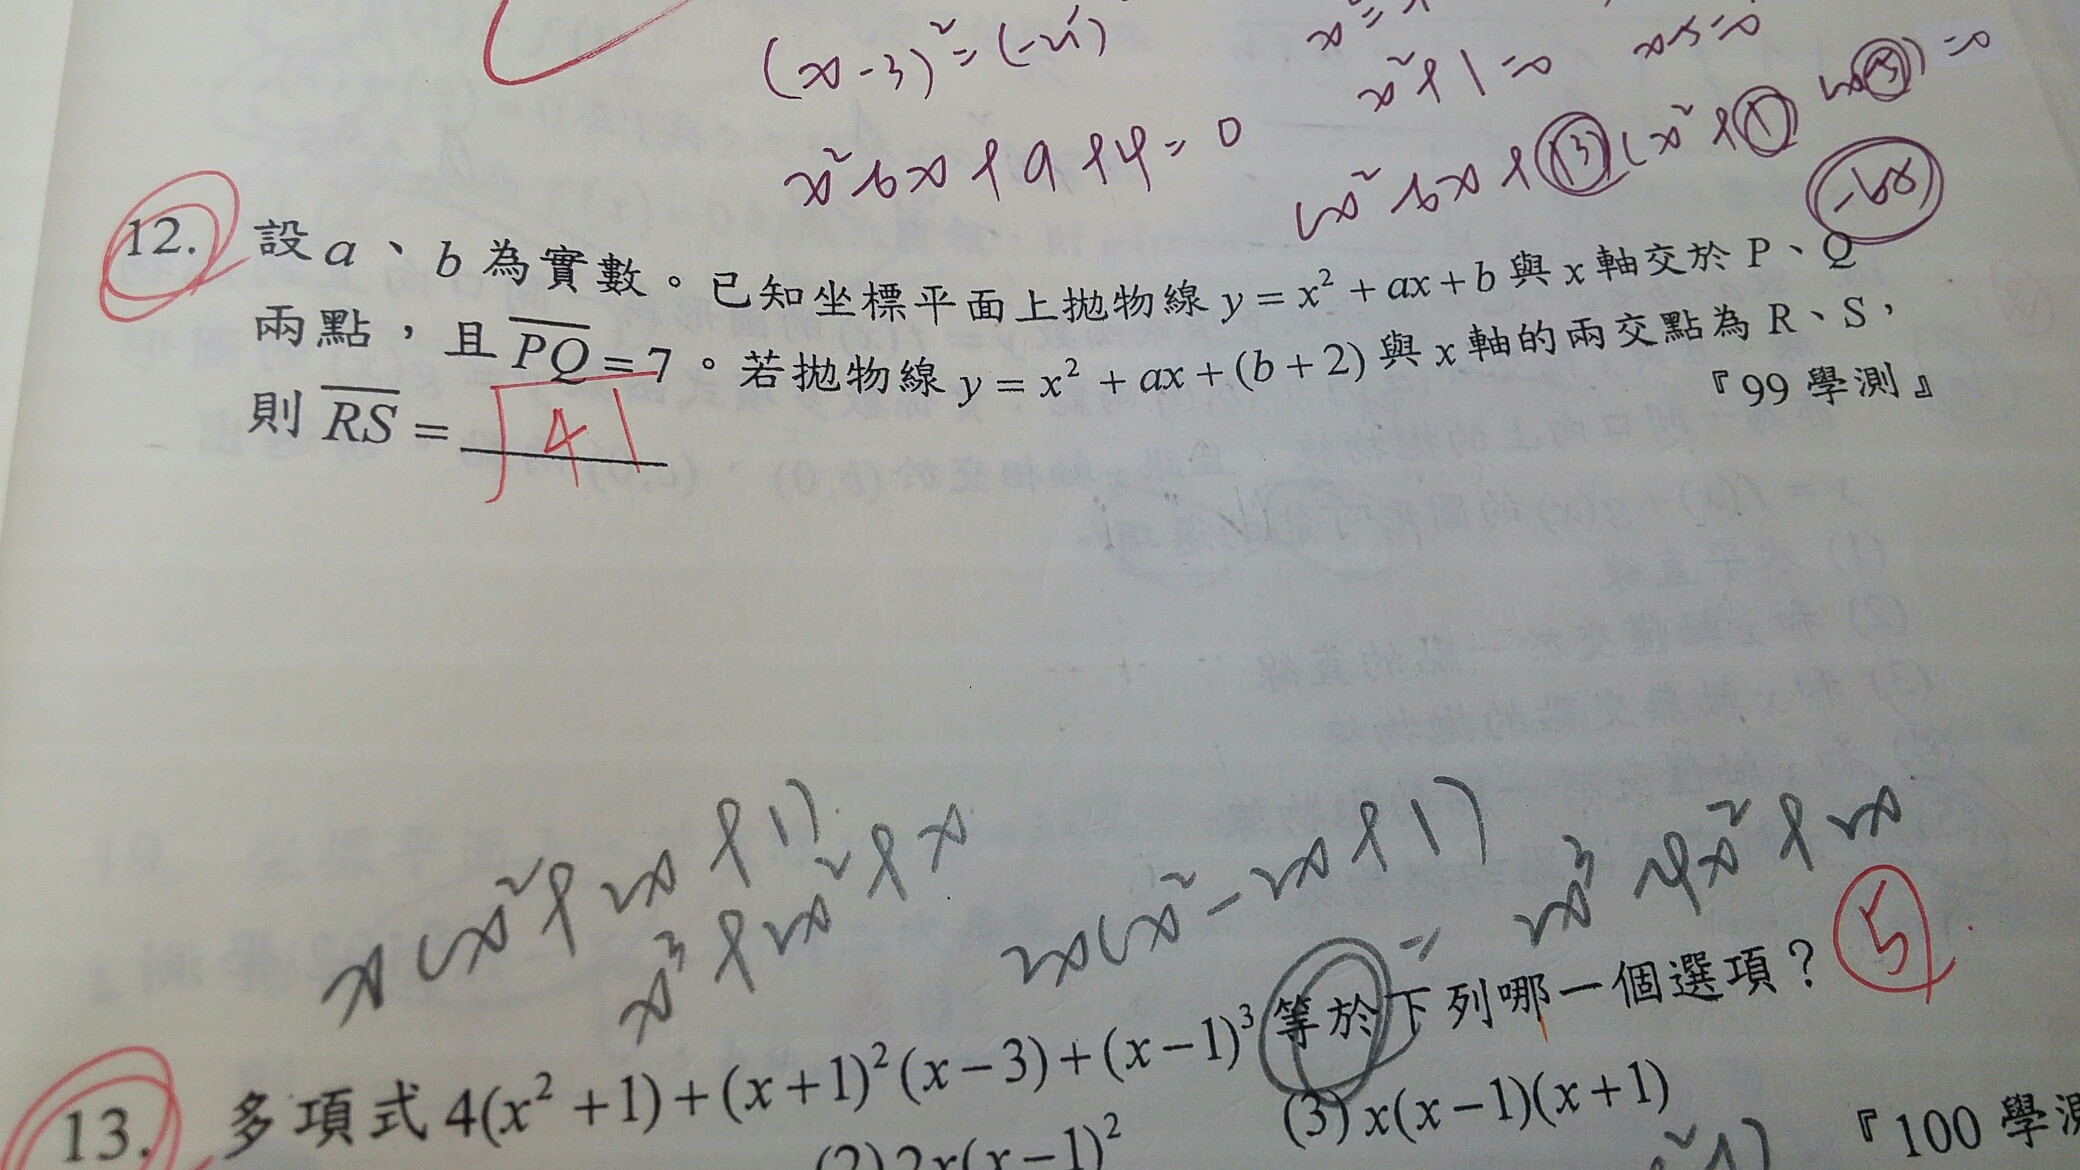 (x-3)²=(-2i)²
x²+1=0
x²-6x+9+4=0
(x²-6x+13)(x²+1)
-6x
12. 設 a、b 為實數。已知坐標平面上拋物線 y = x² + ax + b 與 x 軸交於 P、Q
兩點,且 PQ = 7。若拋物線 y = x² + ax + (b + 2) 與 x 軸的兩交點為 R、S,
則 RS = 41
『99 學測』
x(x²+2x+1)
x³+2x²+x
2x(x²-2x+1)
= 2x³-4x²+2x
5
13. 多項式 4(x² + 1) + (x + 1)² (x − 3) + (x − 1)³ 等於下列哪一個選項?
(2) 2x(x − 1)²
(3) x(x − 1)(x + 1)
『100 學測